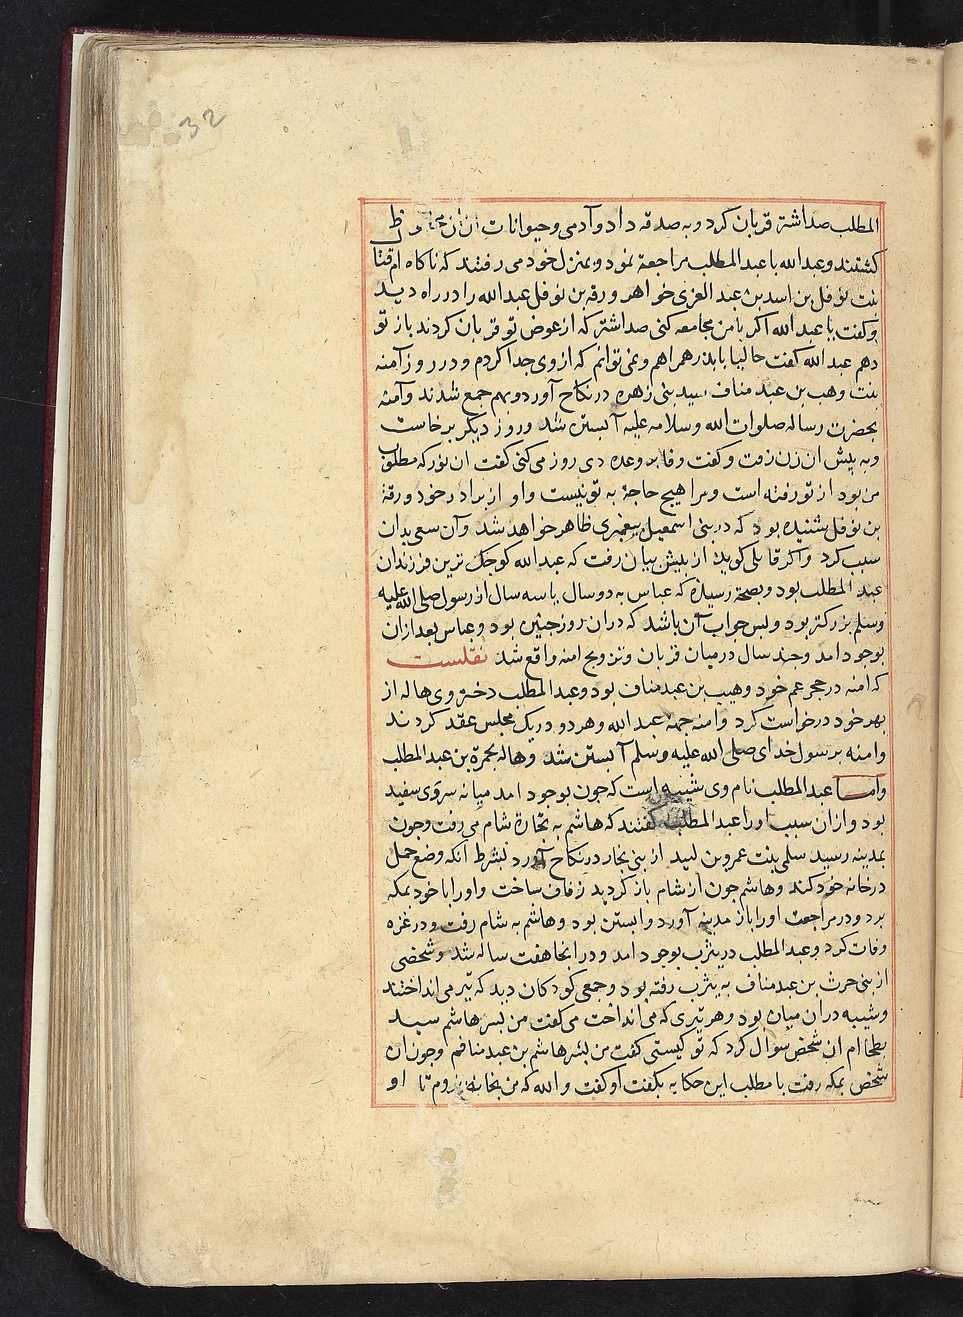 32
المطلب صد اشتر قربان کرد و به صدقه داد و آدمی و حیوانات از ان محظوظ
کشتند و عبد الله با عبد المطلب مراجعة نمود و بمنزل خود می رفتند که ناکاه ام قتا
بنت نوفل بن اسد بن عبد العزی خواهر ورقه بن نوفل عبد الله را در راه دید
و کفت یا عبد الله اکر با من مجامعه کنی صد اشتر که از عوض تو قربان کردند باز تو
دهم عبد الله کفت حالیا با پدر همراهم و نمی توانم که از وی جدا کردم و در روز آمنه
بنت وهب بن عبد مناف سید بنی زهره در نکاح آورد و بهم جمع شدند و آمنه
بحضرت رساله صلوات الله و سلامه علیه آبستن شد و روز دیکر برخاست
و به پیش ان زن رفت و کفت وفا بر وعده دی روز می کنی کفت ان نور که مطلوب
من بود از تو رفته است و مرا هیچ حاجة به تو نیست و او از برادر خود ورقة
بن نوفل شنیده بود که در بنی اسمعیل پیغمبری ظاهر خواهد شد و آن سعی بدان
سبب کرد و اکر قایلی کوید از پیش بیان رفت که عبد الله کوچک ترین فرزندان
عبد المطلب بود و بصحة رسیده که عباس به دو سال یا سه سال از رسول صلی الله علیه
وسلم بزرکتر بود و لبس جواب آن باشد که دران روز جنین بود و عباس بعد ازان
بوجود امد و چند سال در میان قربان و تزویج امنه واقع شد نقلست
که امنه در حجر عم خود وهیب بن عبد مناف بود و عبد المطلب دختر وی هاله از
بهر خود درخواست کرد و امنه جهة عبد الله و هر دو در یک مجلس عقد کردند
و امنه برسول خدای صلی الله علیه وسلم آبستن شد و هاله بحمزة بن عبد المطلب
واما عبد المطلب نام وی شیبه است که چون بوجود امد میانه سر وی سفید
بود و ازان سبب او را عبد المطلب کفتند که هاشم به تجارة شام می رفت و چون
بمدینه رسید سلمی بنت عمرو بن لبید از بنی نجار در نکاح آورد بشرط آنکه وضع حمل
در خانه خود کند و هاشم چون از شام باز کردید زفاف ساخت و او را با خود بمکه
برد و در مراجعت او را باز مدینه آورد و ابستن بود و هاشم به شام رفت و در غزه
وفات کرد و عبد المطلب در یثرب بوجود امد و در انجا هفت ساله شد و شخصی
از بنی حرث بن عبد مناف به یثرب رفته بود و جمعی کودکان دید که تیر می انداختند
و شیبه دران میان بود و هر تیری که می انداخت می کفت من پسر هاشم سید
بطحا ام ان شخص سوال کرد که تو کیستی کفت من پسر هاشم بن عبد منافم و چون ان
شخص بمکه رفت با مطلب این حکایه بکفت او کفت و الله که من بخانه نروم تا او